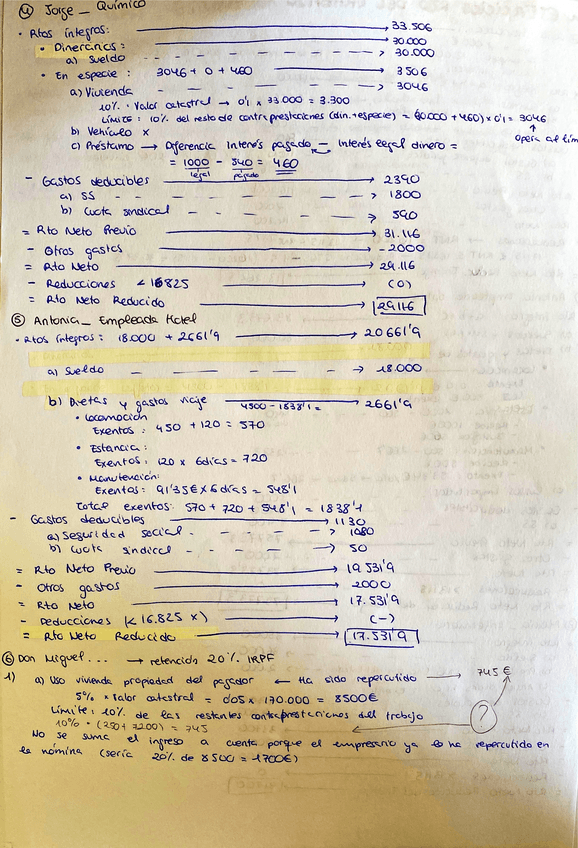 ④ Jorge _ Químico
• Rtos íntegros: → 33.506
• Dinerarios: → 30.000
a) Sueldo - - - → 30.000
• En especie: 3046 + 0 + 460 → 3506
a) Vivienda - - - → 3046
10% · Valor catastral → 0'1 x 33.000 = 3.300
Límite: 10% del resto de contraprestaciones (din. + especie) = (30.000 + 460) x 0'1 = 3046
b) Vehículo x
↑ Opera al lím
c) Préstamo → Diferencia Interés pagado - Interés legal dinero =
= 1000 - 540 = 460
legal pagado
- Gastos deducibles → 2390
a) SS - - - → 1800
b) Cuota sindical - - - → 590
= Rto Neto Previo → 31.116
- Otros gastos → -2000
= Rto Neto → 29.116
- Reducciones < 16825 → (0)
= Rto Neto Reducido → 29.116
⑤ Antonia _ Empleada Hotel
• Rtos íntegros: 18.000 + 2661'9 → 20661'9
a) Sueldo - - - → 18.000
b) Dietas y gastos viaje 4500 - 1838'1 = → 2661'9
• Locomoción
Exentos: 450 + 120 = 570
• Estancia:
Exentos: 120 x 6días = 720
• Manutención:
Exentos: 91'35€ x 6 días = 548'1
Total exentos: 570 + 720 + 548'1 = 1838'1
- Gastos deducibles → 1130
a) Seguridad social - - - → 1080
b) Cuota sindical - - - → 50
= Rto Neto Previo → 19.531'9
- Otros gastos → 2000
= Rto Neto → 17.531'9
- Deducciones (< 16.825 x) → (-)
= Rto Neto Reducido → 17.531'9
⑥ Don Miguel... → retención 20% IRPF
1) a) Uso vivienda propiedad del pagador ← Ha sido repercutido → 745€
5% x Valor catastral = 0'05 x 170.000 = 8500€
Límite: 10% de las restantes contraprestaciones del trabajo
?
10% · (250 + 7200) = 745
No se suma el ingreso a cuenta porque el empresario ya lo ha repercutido en
la nómina (sería 20% de 8500 = 1700€)